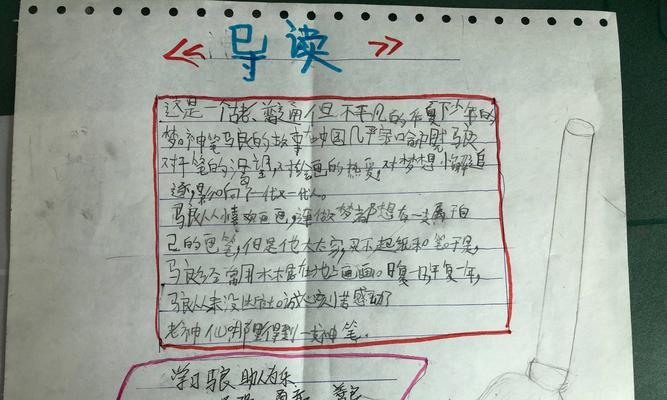 导读
这是一个古老普通但不平凡的年夏下少年的
梦。神笔马良的故事在中国几乎家喻户晓马良
对于笔的渴望,对绘画的热爱,对梦想不懈追
逐,影响了一代又一代人。
马良从小喜欢画画,连做梦都想有一支属于自
己的画笔,但是他太太穷,买不起纸和笔。于是,
马良经常用木棍在地上画画。日复一日年复一年,
马良从来没 诚心刻苦感动了
老神仙 那里得到一支神笔.
学习马良 助人为乐